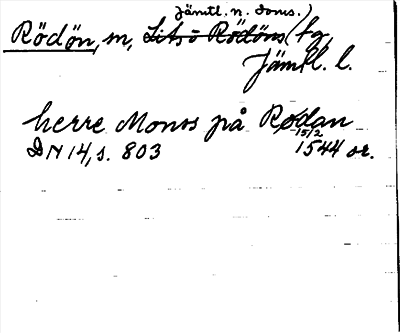 Jämtl. n. doms.)
Rödön, m, Lits o Rödöns (tg,
Jämtl. l.
herre Monss på Rødan
15/2
DN 14, s. 803 1544 or.